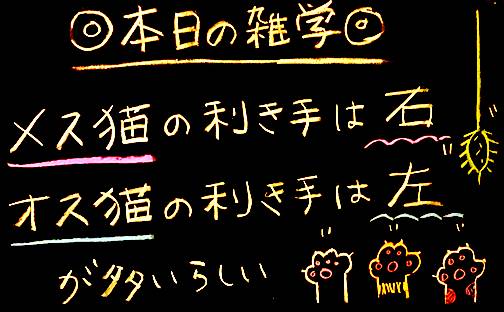 ◎本日の雑学◎
メス猫の利き手は右
オス猫の利き手は左
が多いらしい